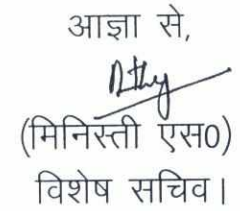 आज्ञा से,
(मिनिस्ती एस0)
विशेष सचिव।